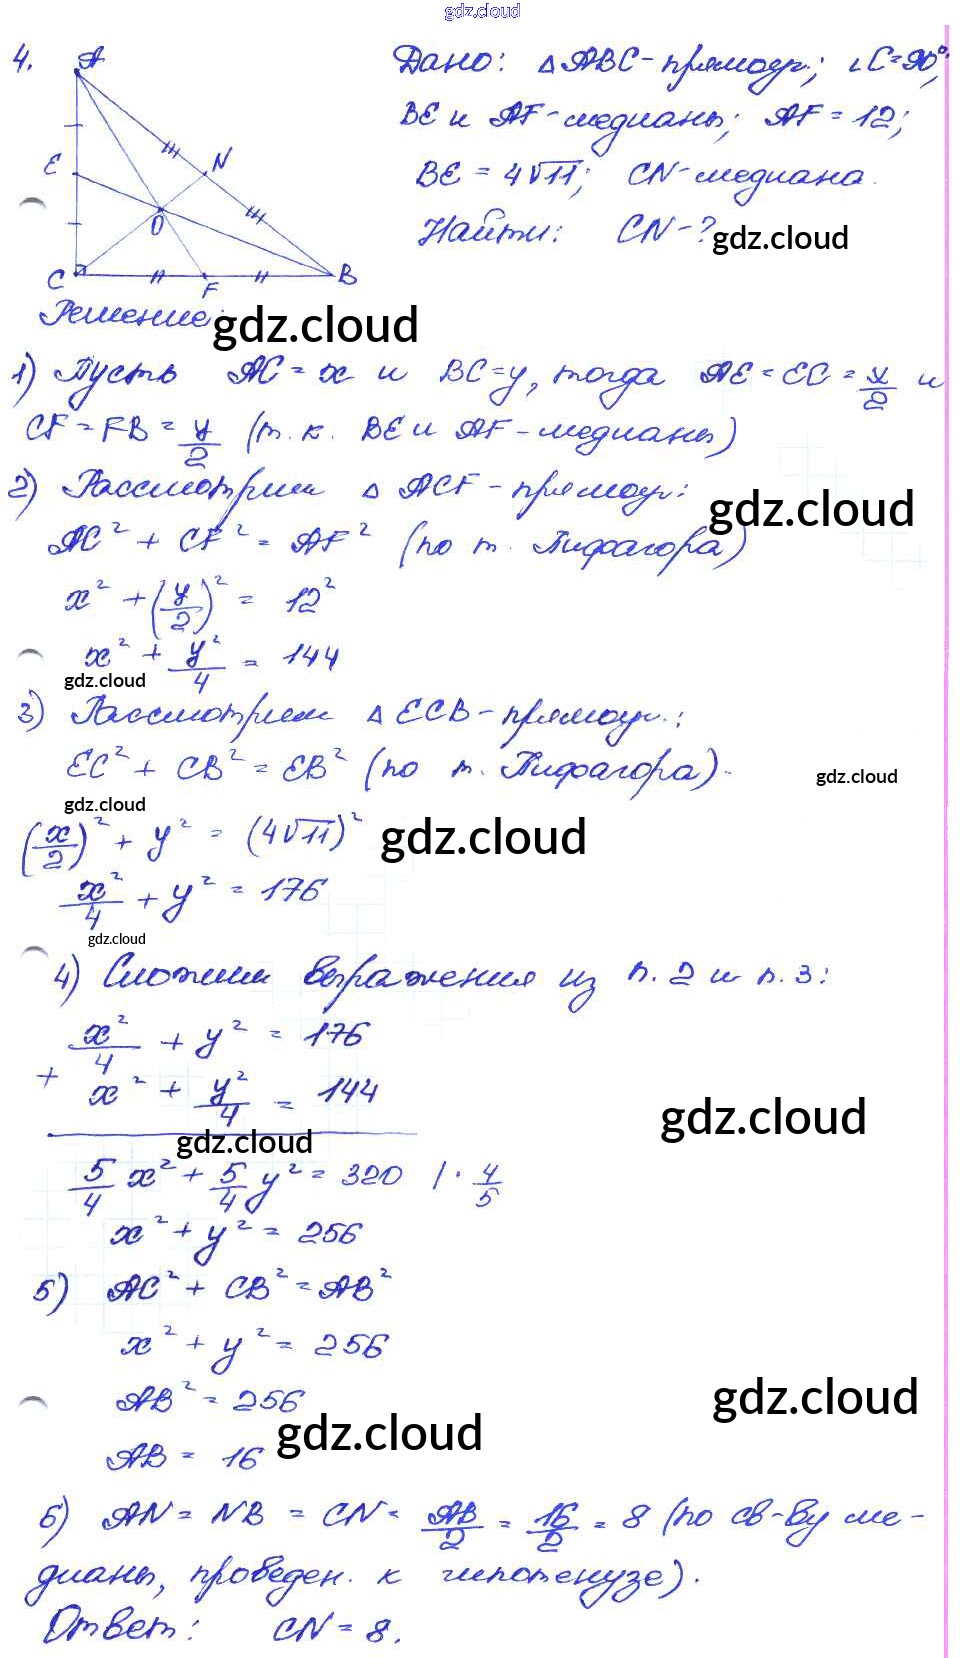 gdz.cloud
4. A E N O C F B
Дано: △ABC - прямоуг.; ∠C=90°;
BE и AF - медианы; AF = 12;
BE = 4√11; CN - медиана.
Найти: CN - ?
gdz.cloud
Решение:
gdz.cloud
1) Пусть AC = x и BC = y, тогда AE = EC = x/2 и
CF = FB = y/2 (т. к. BE и AF - медианы)
2) Рассмотрим △ ACF - прямоуг.:
gdz.cloud
AC² + CF² = AF² (по т. Пифагора)
x² + (y/2)² = 12²
x² + y²/4 = 144
gdz.cloud
3) Рассмотрим △ ECB - прямоуг.:
EC² + CB² = EB² (по т. Пифагора).
gdz.cloud
gdz.cloud
(x/2)² + y² = (4√11)²
gdz.cloud
x²/4 + y² = 176
gdz.cloud
4) Сложим выражения из п. 2 и п. 3:
x²/4 + y² = 176
+ x² + y²/4 = 144
gdz.cloud
gdz.cloud
5/4 x² + 5/4 y² = 320 | · 4/5
x² + y² = 256
5) AC² + CB² = AB²
x² + y² = 256
AB² = 256
gdz.cloud
gdz.cloud
AB = 16
6) AN = NB = CN = AB/2 = 16/2 = 8 (по св-ву ме-
дианы, проведен. к гипотенузе).
Ответ: CN = 8.